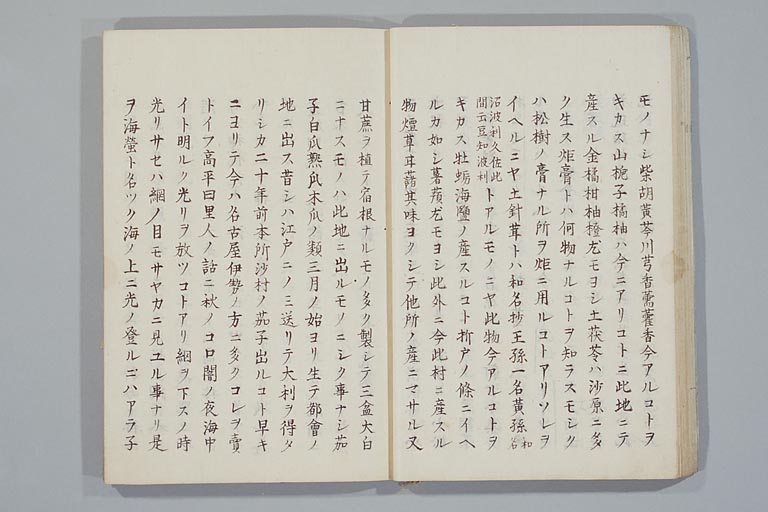 モノナシ柴胡黄芩川芎香薷藿香今アルコトヲ
キカス山梔子橘柚ハ今ニアリコトニ此地ニテ
産スル金橘柑柚橙尤モヨシ土茯苓ハ沙原ニ多
ク生ス炬膏トハ何物ナルコトヲ知ラスモシク
ハ松樹ノ膏ナル所ヲ炬ニ用ルコトアリソレヲ
イヘルニヤ土針草トハ和名抄王孫一名黄孫和名
沼波利久佐此間云豆知波利トアルモノニヤ此物今アルコトヲ
キカス牡蛎海鹽ノ産スルコト折戸ノ條ニイヘ
ルカ如シ薯蕷尤モヨシ此外ニ今此村ニ産スル
物煙草耳其味ヨクシテ他所ノ産ニマサル又
甘蔗ヲ植テ宿根ナルモノ多ク製シテ三盆大白
ニナスモノハ此地ニ出ルモノニシク事ナシ茄
子白瓜熬瓜木瓜ノ類三月ノ始ヨリ生テ都會ノ
地ニ出ス昔シハ江戸ニノミ送リテ大利ヲ得タ
リシカ二十年前本所沙村ノ茄子出ルコト早キ
ニヨリテ今ハ名古屋伊勢ノ方ニ多クコレヲ賣
トイフ高平曰里人ノ話ニ秋ノコロ闇ノ夜海中
イト明ルク光リヲ放ツコトアリ網ヲ下スノ時
光リサセハ網ノ目モサヤカニ見ユル事ナリ是
ヲ海螢ト名ツク海ノ上ニ光ノ登ルニハアラ子